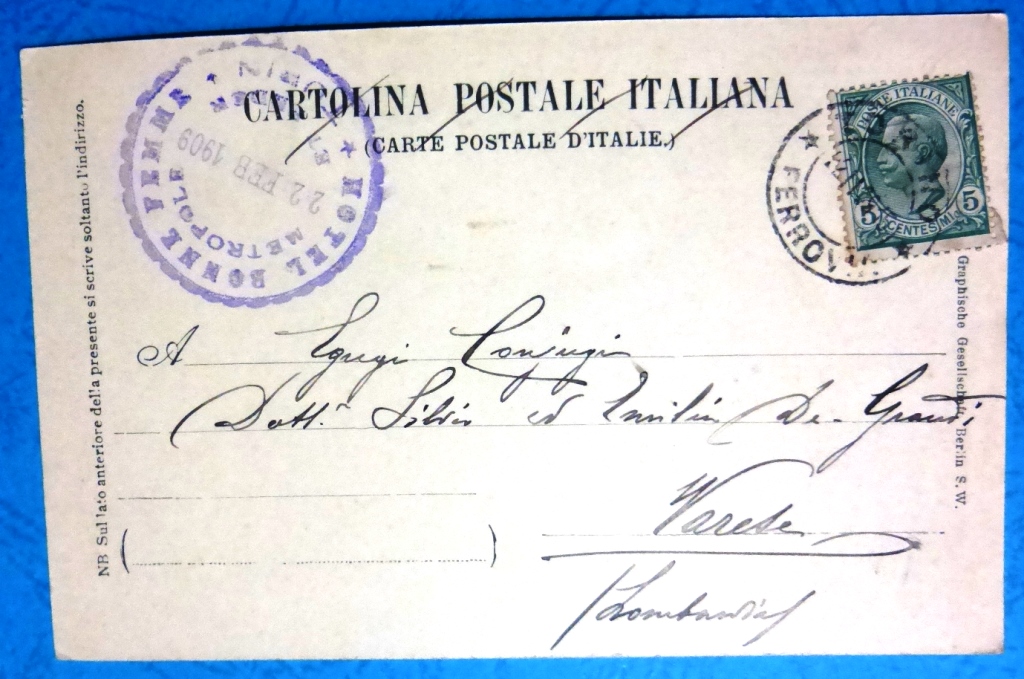 CARTOLINA POSTALE ITALIANA
(CARTE POSTALE D'ITALIE.)
★ HOTEL BONNE FEMME
ET
METROPOLE
22 FEB 1909
POSTE ITALIANE
5 5
CENTESIMI
★ FERROVIA
A Egregi Coniugi
Dott.r Silvio ed Emilia De-Grandi
Varese
(Lombardia)
NB Sul lato anteriore della presente si scrive soltanto l'indirizzo.
Graphische Gesellschaft, Berlin S. W.